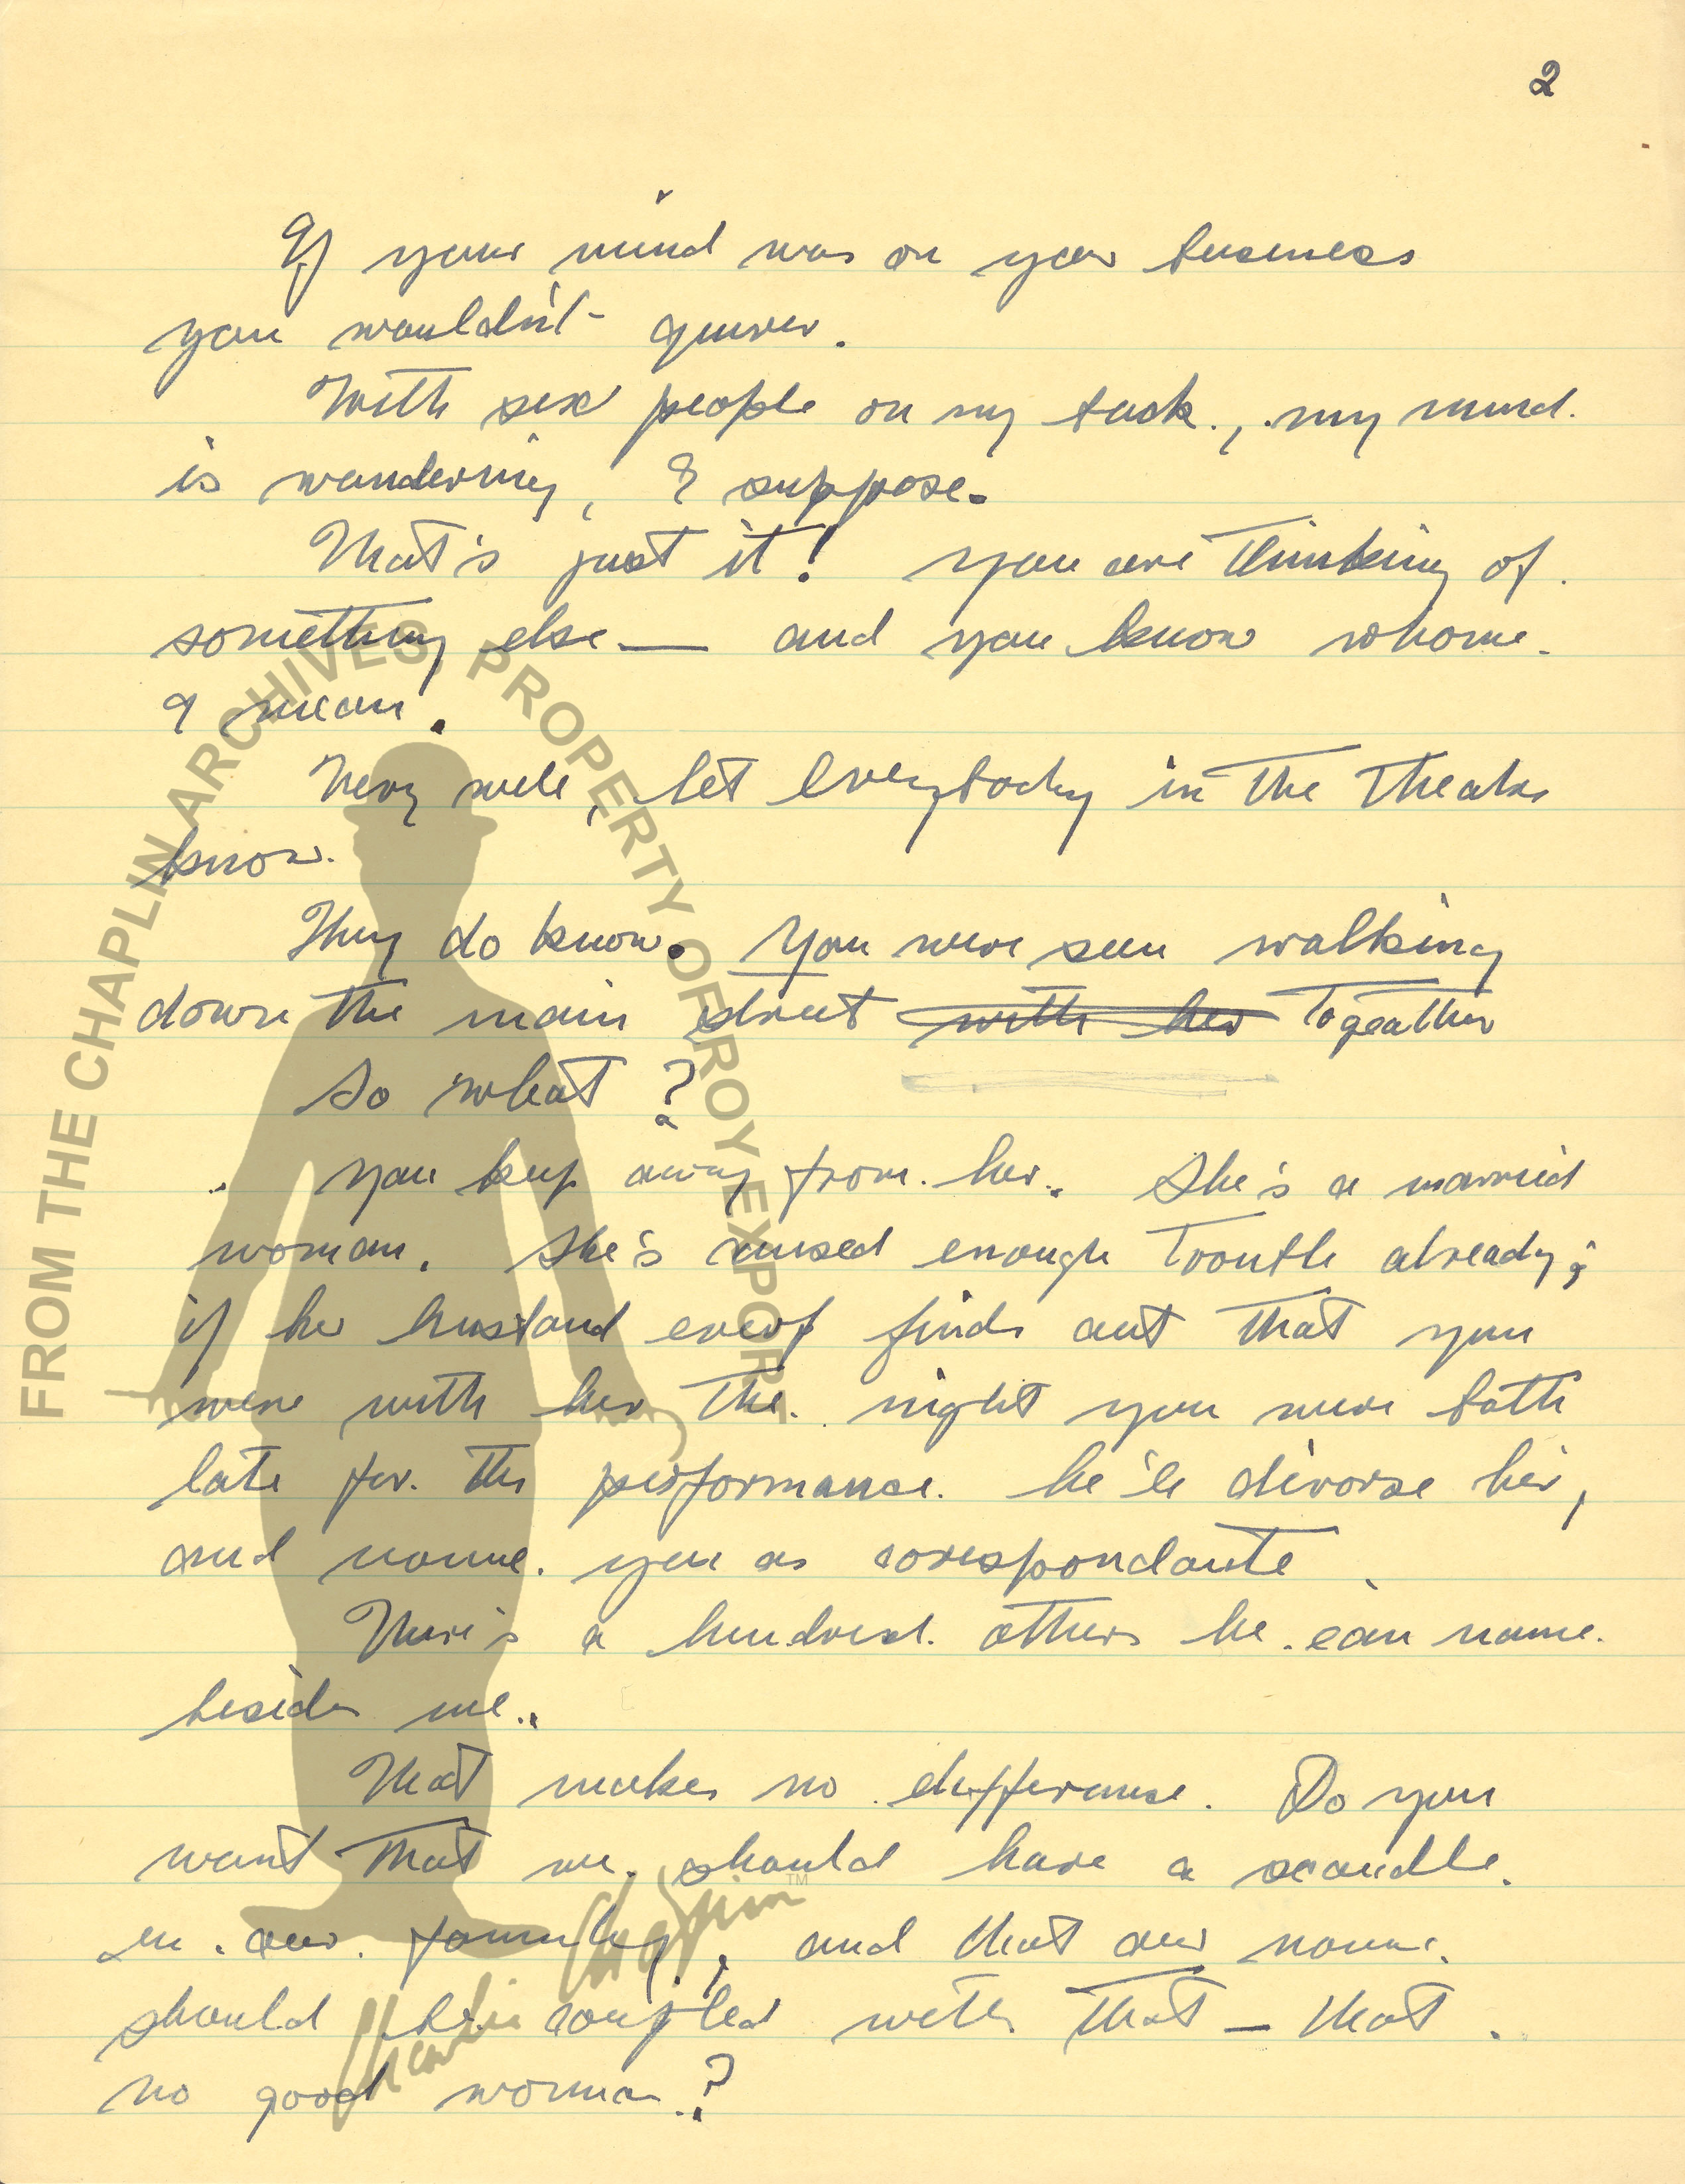 2
If your mind was on your business
you wouldn't quiver.
With six people on my back, my mind
is wandering, I suppose.
That's just it! You are thinking of
something else — and you know whome
I mean.
Very well, let everybody in the theatre
know.
They do know. You were seen walking
down the main street with her Togeather
So what?
You keep away from her. She's a married
woman. She's caused enough trouble already;
if her husband ever finds out that you
were with her the night you were both
late for the performance. he'll divorse her,
and name you as corespondante.
There's a hundred others he can name
besides me.
That makes no differance. Do you
want that we should have a scandle
in our family, and that our name
should be coupled with that — that
no good woman?
FROM THE CHAPLIN ARCHIVES PROPERTY OF ROY EXPORT
Charlie Chaplin ™